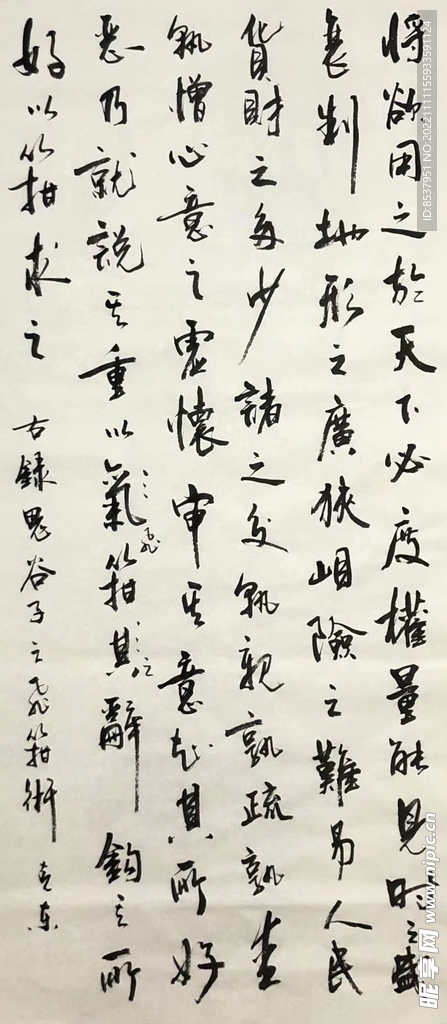 將欲用之於天下必度權量能見時之盛
衰制地形之廣狹岨險之難易人民
貨財之多少諸之交孰親孰疏孰愛
孰憎心意之慮懷審其意知其所好
惡乃就說其重以氣箝其辭鉤其所
飛
之
好以箝求之
右錄鬼谷子之飛箝術
ID:8537951 NO:20221111155933591124
昵享网 www.nipic.cn